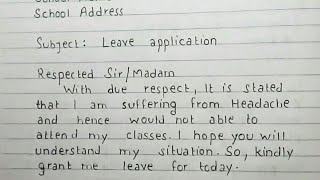 School Address
Subject: Leave application
Respected Sir/Madam
With due respect, It is stated
that I am suffering from Headache
and hence would not able to
attend my classes. I hope you will
understand my situation. So, kindly
grant me leave for today.